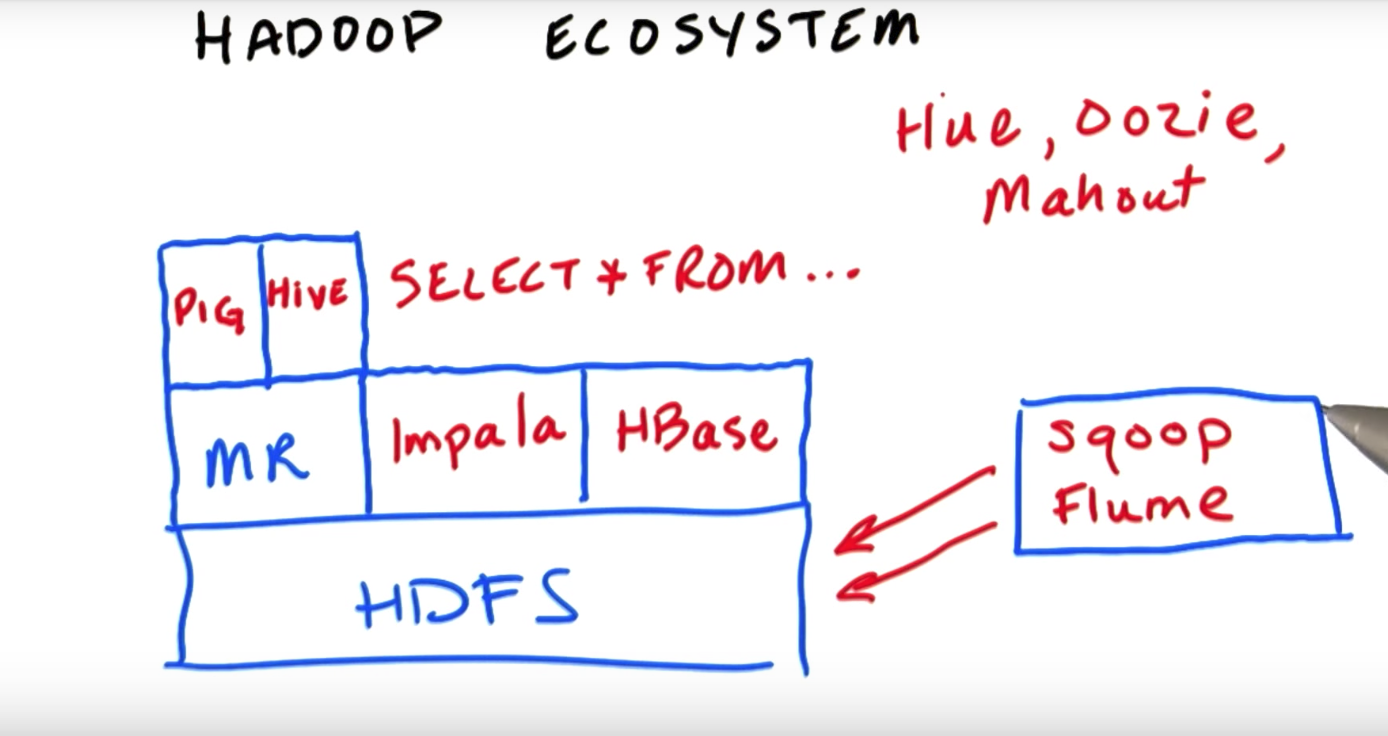 HADOOP ECOSYSTEM
Hue, Oozie,
Mahout
PIG HIVE SELECT * FROM...
MR Impala HBase
Sqoop
Flume
HDFS